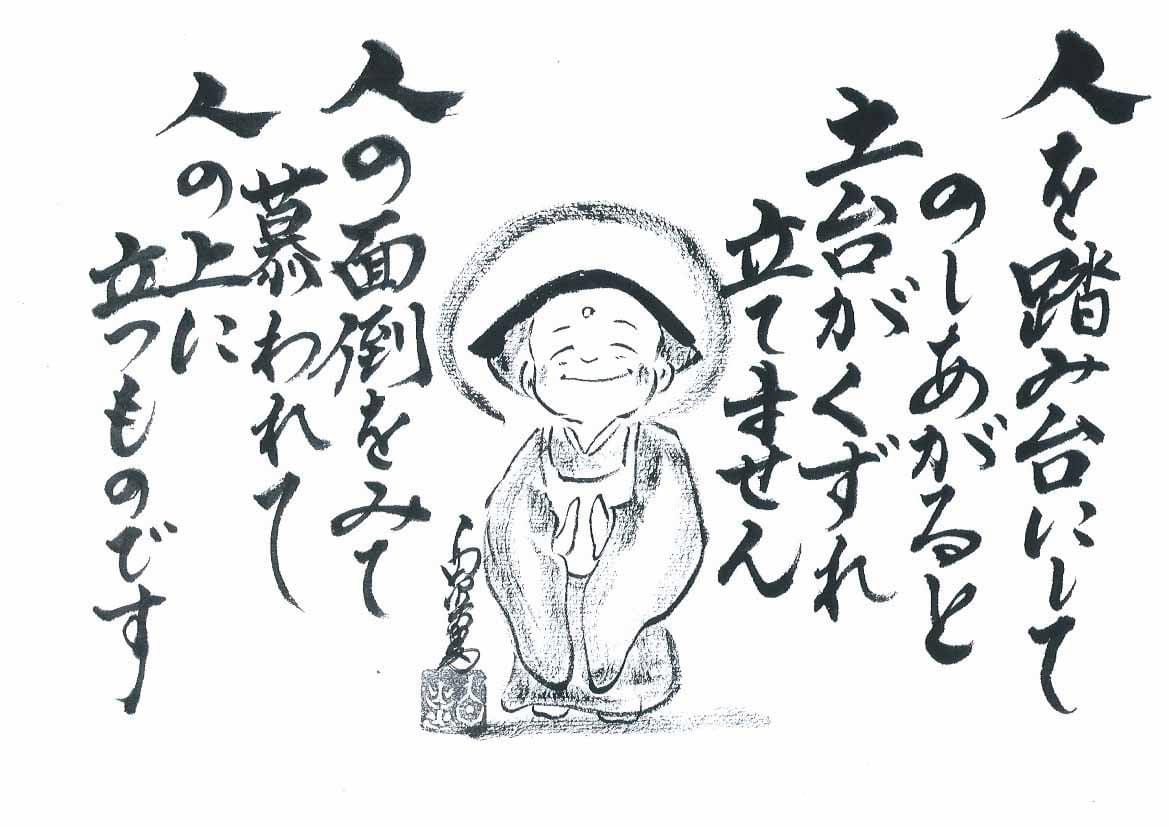 人を踏み台にして
のしあがると
土台がくずれ
立てません
人の面倒をみて
慕われて
人の上に
立つものです